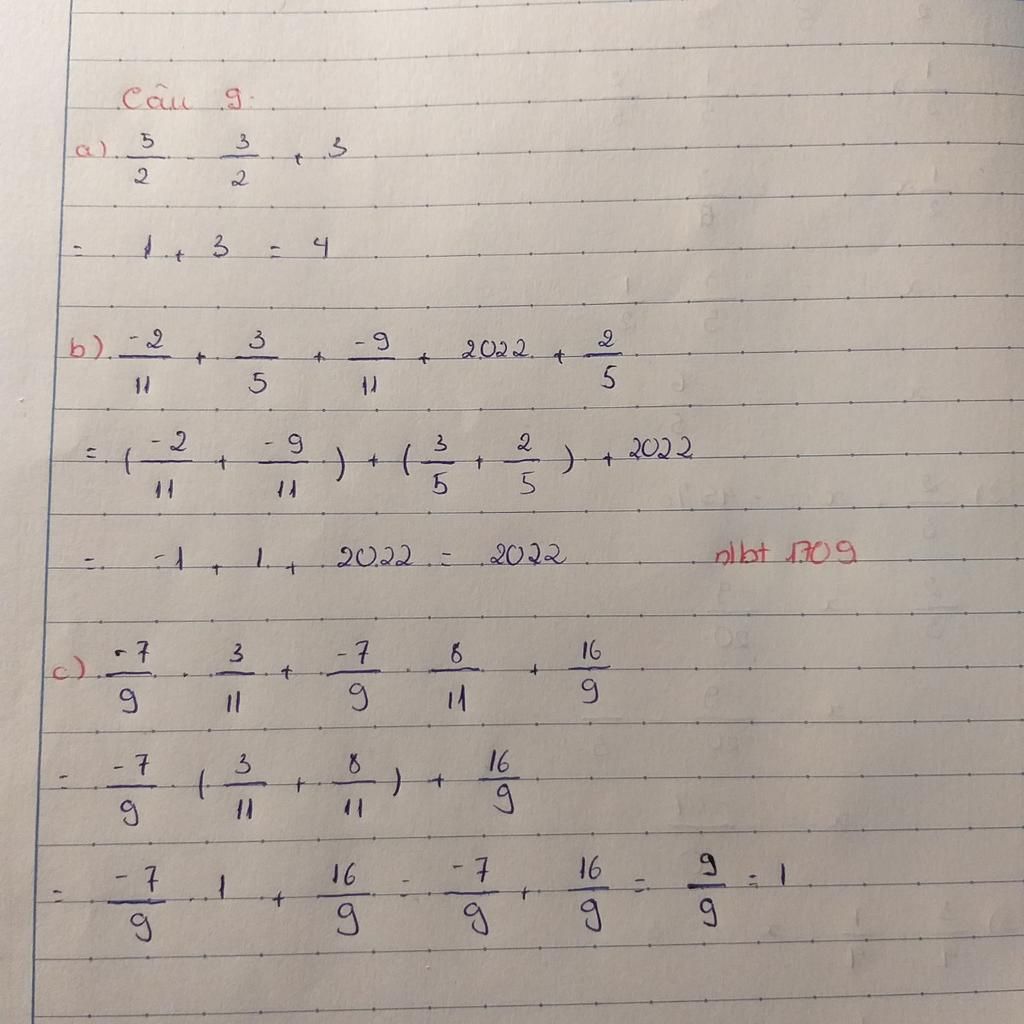 Câu 9:
a) 5/2 - 3/2 + 3
= 1 + 3 = 4
b) -2/11 + 3/5 + -9/11 + 2022 + 2/5
= (-2/11 + -9/11) + (3/5 + 2/5) + 2022
= -1 + 1 + 2022 = 2022 nlbt 1709
c) -7/9 . 3/11 + -7/9 . 8/11 + 16/9
= -7/9 (3/11 + 8/11) + 16/9
= -7/9 . 1 + 16/9 = -7/9 + 16/9 = 9/9 = 1